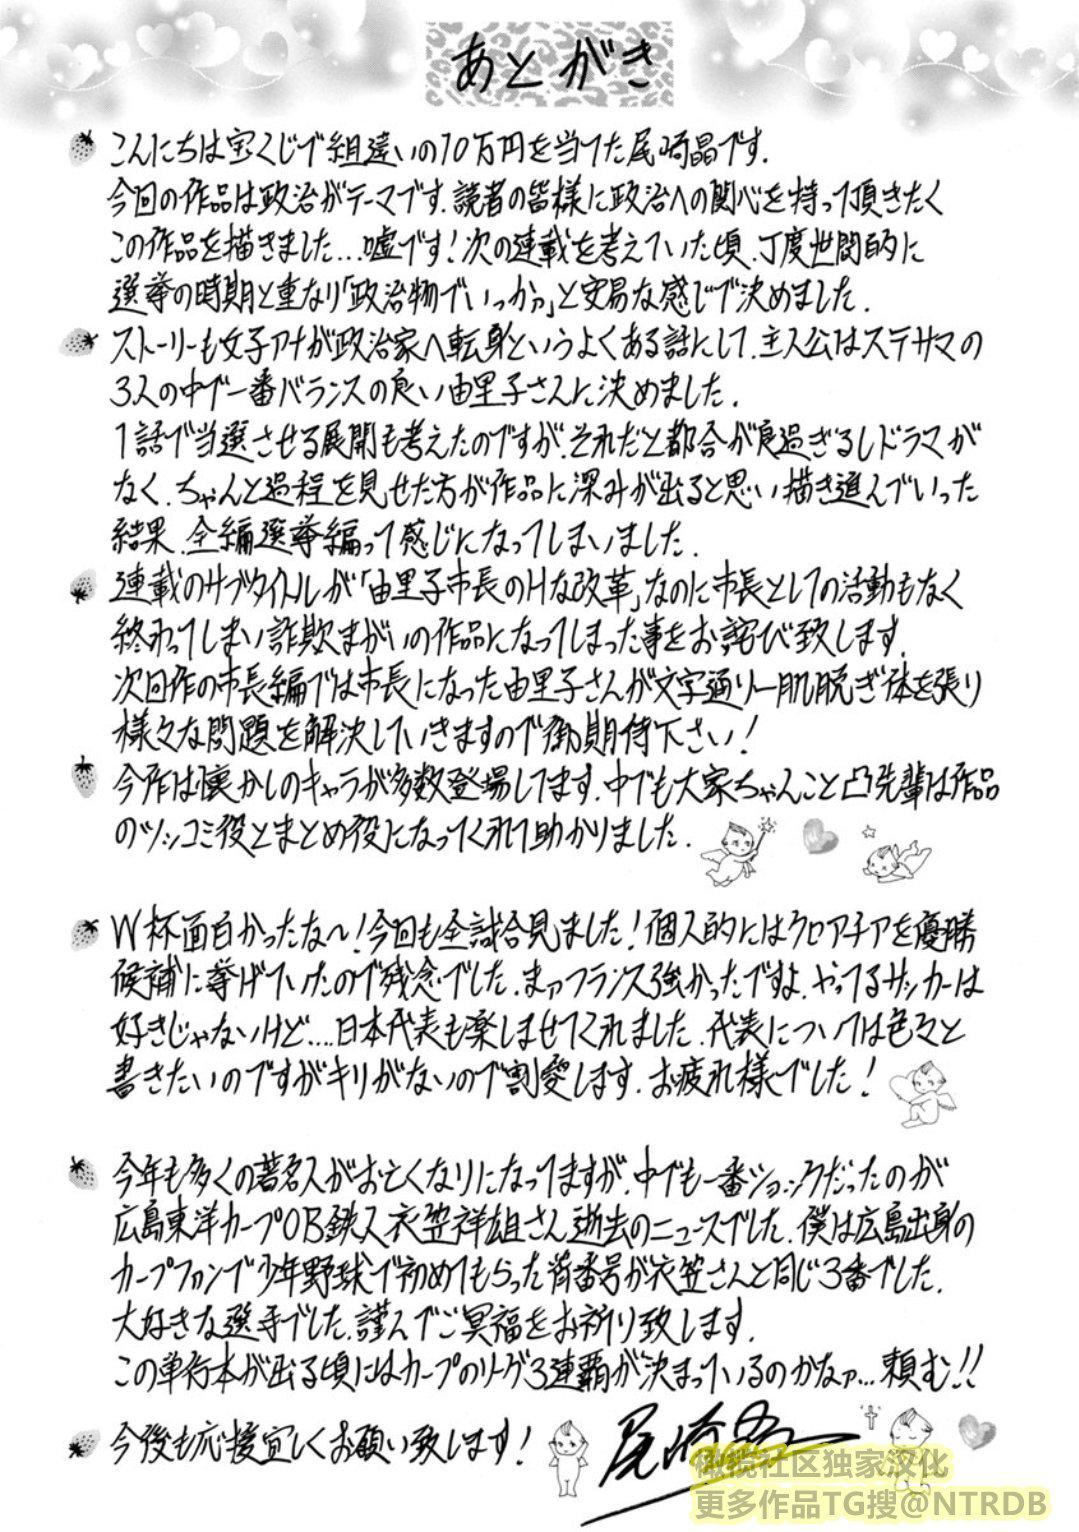 あとがき
こんにちは宝くじで組違いの10万円を当てた尾崎晶です.
今回の作品は政治がテーマです.読者の皆様に政治への関心を持って頂きたく
この作品を描きました...嘘です!次の連載を考えていた頃、丁度世間的に
選挙の時期と重なり「政治物でいっかぁ」と安易な感じで決めました.
ストーリーも女子アナが政治家へ転身というよくある話にして、主人公はステサマの
3人の中で一番バランスの良い由里子さんに決めました.
1話で当選させる展開も考えたのですが、それだと都合が良過ぎるしドラマが
なく、ちゃんと過程を見せた方が作品に深みが出ると思い描き進んでいった
結果、全編選挙編って感じになってしまいました.
連載のサブタイトルが「由里子市長のHな改革」なのに市長としての活動もなく
終わってしまい詐欺まがいの作品になってしまった事をお詫び致します.
次回作の市長編では市長になった由里子さんが文字通り一肌脱ぎ体を張り
様々な問題を解決していきますので御期待下さい!
今作は懐かしのキャラが多数登場してます.中でも大家ちゃんこと凸先輩は作品
のツッコミ役とまとめ役になってくれて助かりました.
W杯面白かったな〜!今回も全試合見ました!個人的にはクロアチアを優勝
候補に挙げていたので残念でした.まァフランス強かったですよ、やってるサッカーは
好きじゃないけど....日本代表も楽しませてくれました.代表については色々と
書きたいのですがキリがないので割愛します.お疲れ様でした!
今年も多くの著名人がお亡くなりになってますが、中でも一番ショックだったのが
広島東洋カープOB鉄人衣笠祥雄さん逝去のニュースでした.僕は広島出身の
カープファンで少年野球で初めてもらった背番号が衣笠さんと同じ3番でした.
大好きな選手でした.謹んでご冥福をお祈り致します.
この単行本が出る頃にはカープのリーグ3連覇が決まっているのかなァ...頼む!!
今後も応援宜しくお願い致します!
尾崎晶
橄榄社区独家汉化
更多作品TG搜@NTRDB